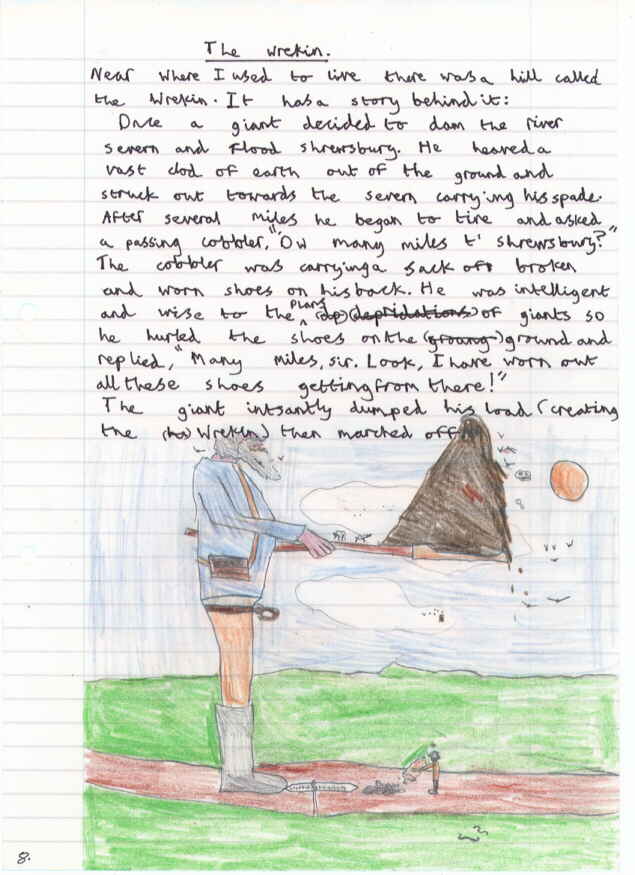 The Wrekin.
Near where I used to live there was a hill called
the Wrekin. It has a story behind it:
Once a giant decided to dam the river
severn and Flood shrewsbury. He heaved a
vast clod of earth out of the ground and
struck out towards the severn carrying his spade.
After several miles he began to tire and asked
a passing cobbler, "Ow many miles t' shrewsbury?"
The cobbler was carrying a sack of broken
and worn shoes on his back. He was intelligent
and wise to the plans (dep) (depridations) of giants so
he hurled the shoes on the (groung) ground and
replied, "Many miles, sir. Look, I have worn out
all these shoes getting from there!"
The giant intsantly dumped his load (creating
the (ho) Wrekin) then marched off
8.